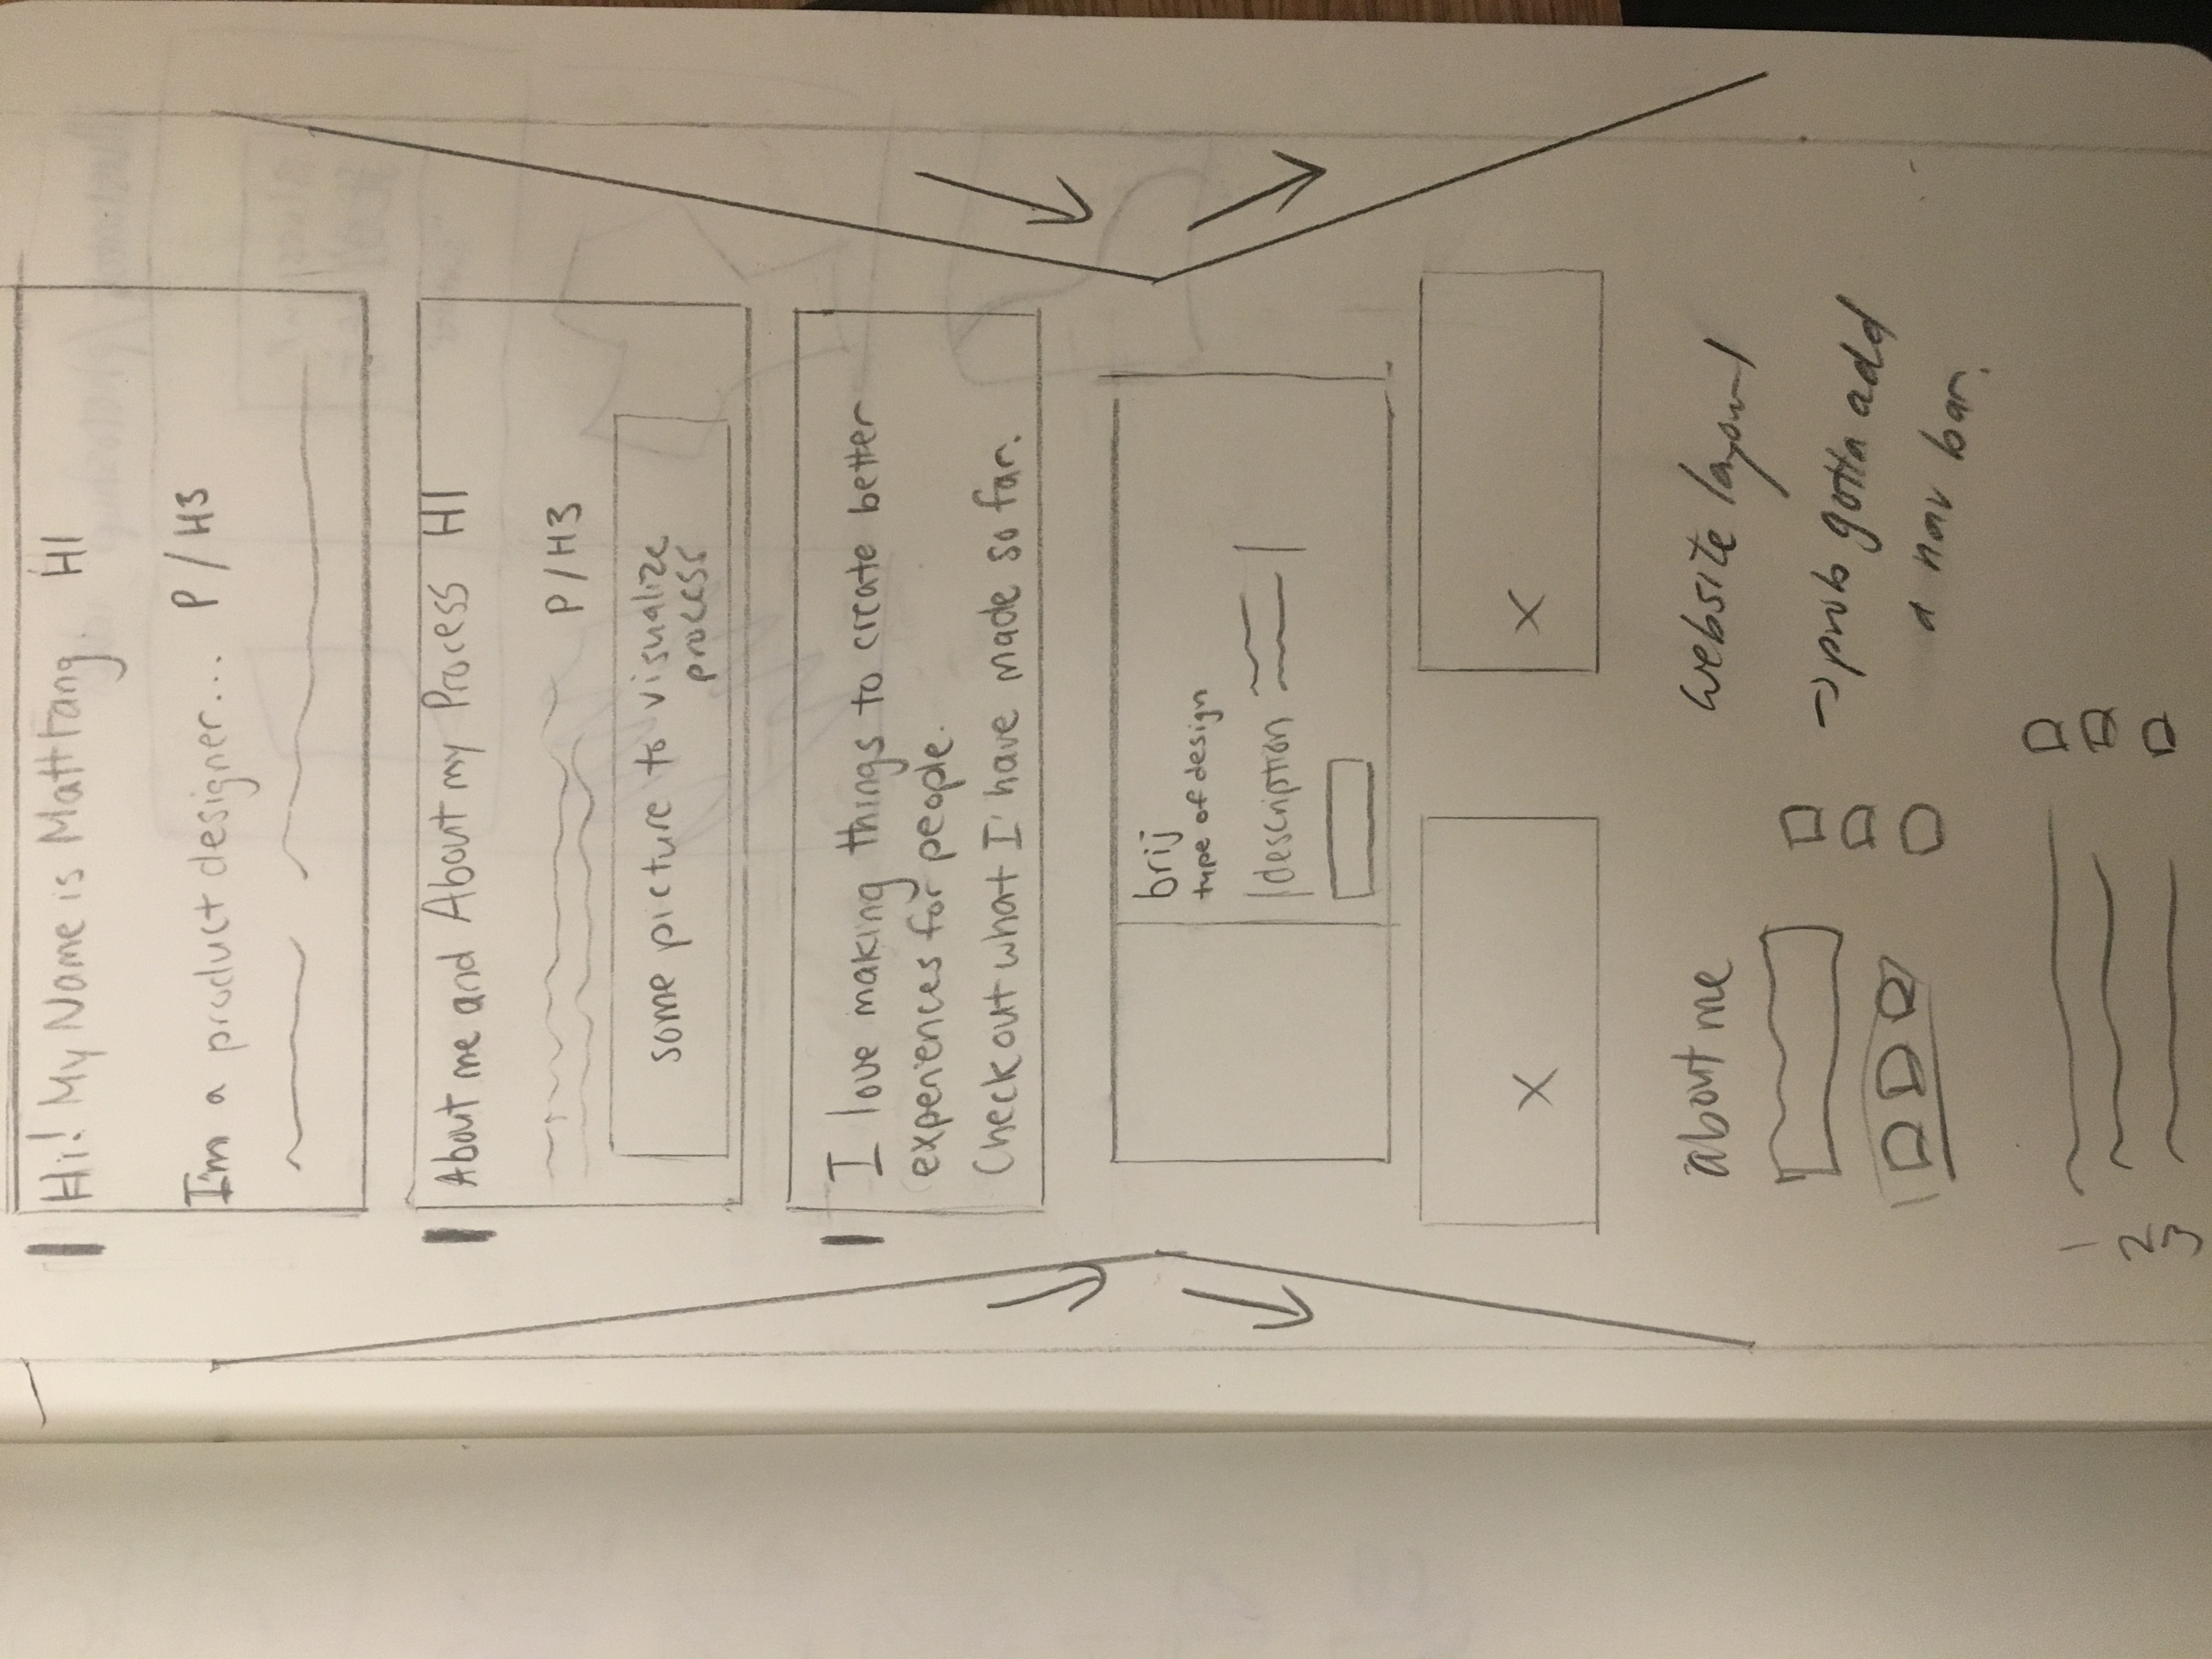 Hi! My Name is Matt Fang. H1
I'm a product designer... P / H3
About me and About my Process H1
P / H3
some picture to visualize
process
I love making things to create better
experiences for people.
Check out what I' have made so far.
brij
type of design
description
X X
about me
website layout
→ prob gotta add
a nav bar.
1
2
3